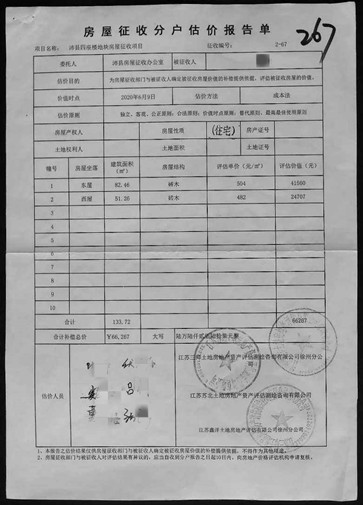 房屋征收分户估价报告单
267
项目名称: 沛县四座楼地块房屋征收项目 估收编号: 2-67
委托人 沛县房屋征收办公室 被征收人
估价目的 为房屋征收部门与被征收人确定被征收房屋价值的补偿提供依据，评估被征收房屋的价值。
价值时点 2020年6月9日 估价方法 成本法
估价原则 独立、客观、公正原则；合法原则；价值时点原则；替代原则；最高最佳使用原则
房屋产权人 房屋性质 (住宅) 房产证号
土地权利人 土地面积 土地证号
幢号 房屋坐落 建筑面积(㎡) 房屋结构 评估单价(元/㎡) 评估价值(元)
1 东屋 82.46 砖木 504 41560
2 西屋 51.26 砖木 482 24707
3
4
5
6
7
8
9
10
合计 133.72 66267
合计补偿总价 ¥66,267 大写 陆万陆仟贰佰陆拾柒元整
估价人员
江苏三师土地房地产资产评估测绘咨询有限公司徐州分公司
江苏苏北土地房地产资产评估测绘咨询有限公司
江苏鑫洋土地房地产评估有限公司徐州分公司
1、本报告之估价结果仅供房屋征收部门与被征收人确定被征收房屋价值的补偿提供依据，不得作为其他用途。
2、房屋征收部门与被征收人对评估结果有异议的，应当自收到分户报告之日起10日内，向房地产价格评估机构申请复核。